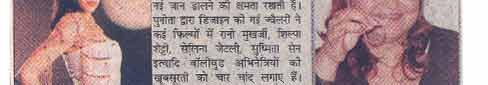 नई जान डालने की क्षमता रखती है।
पुनीता द्वारा डिजाइन की गई ज्वैलरी ने
कई फिल्मों में रानी मुखर्जी, शिल्पा
शेट्टी, सेलिना जेटली, सुष्मिता सेन
इत्यादि बॉलीवुड अभिनेत्रियों की
खूबसूरती को चार चांद लगाए हैं।